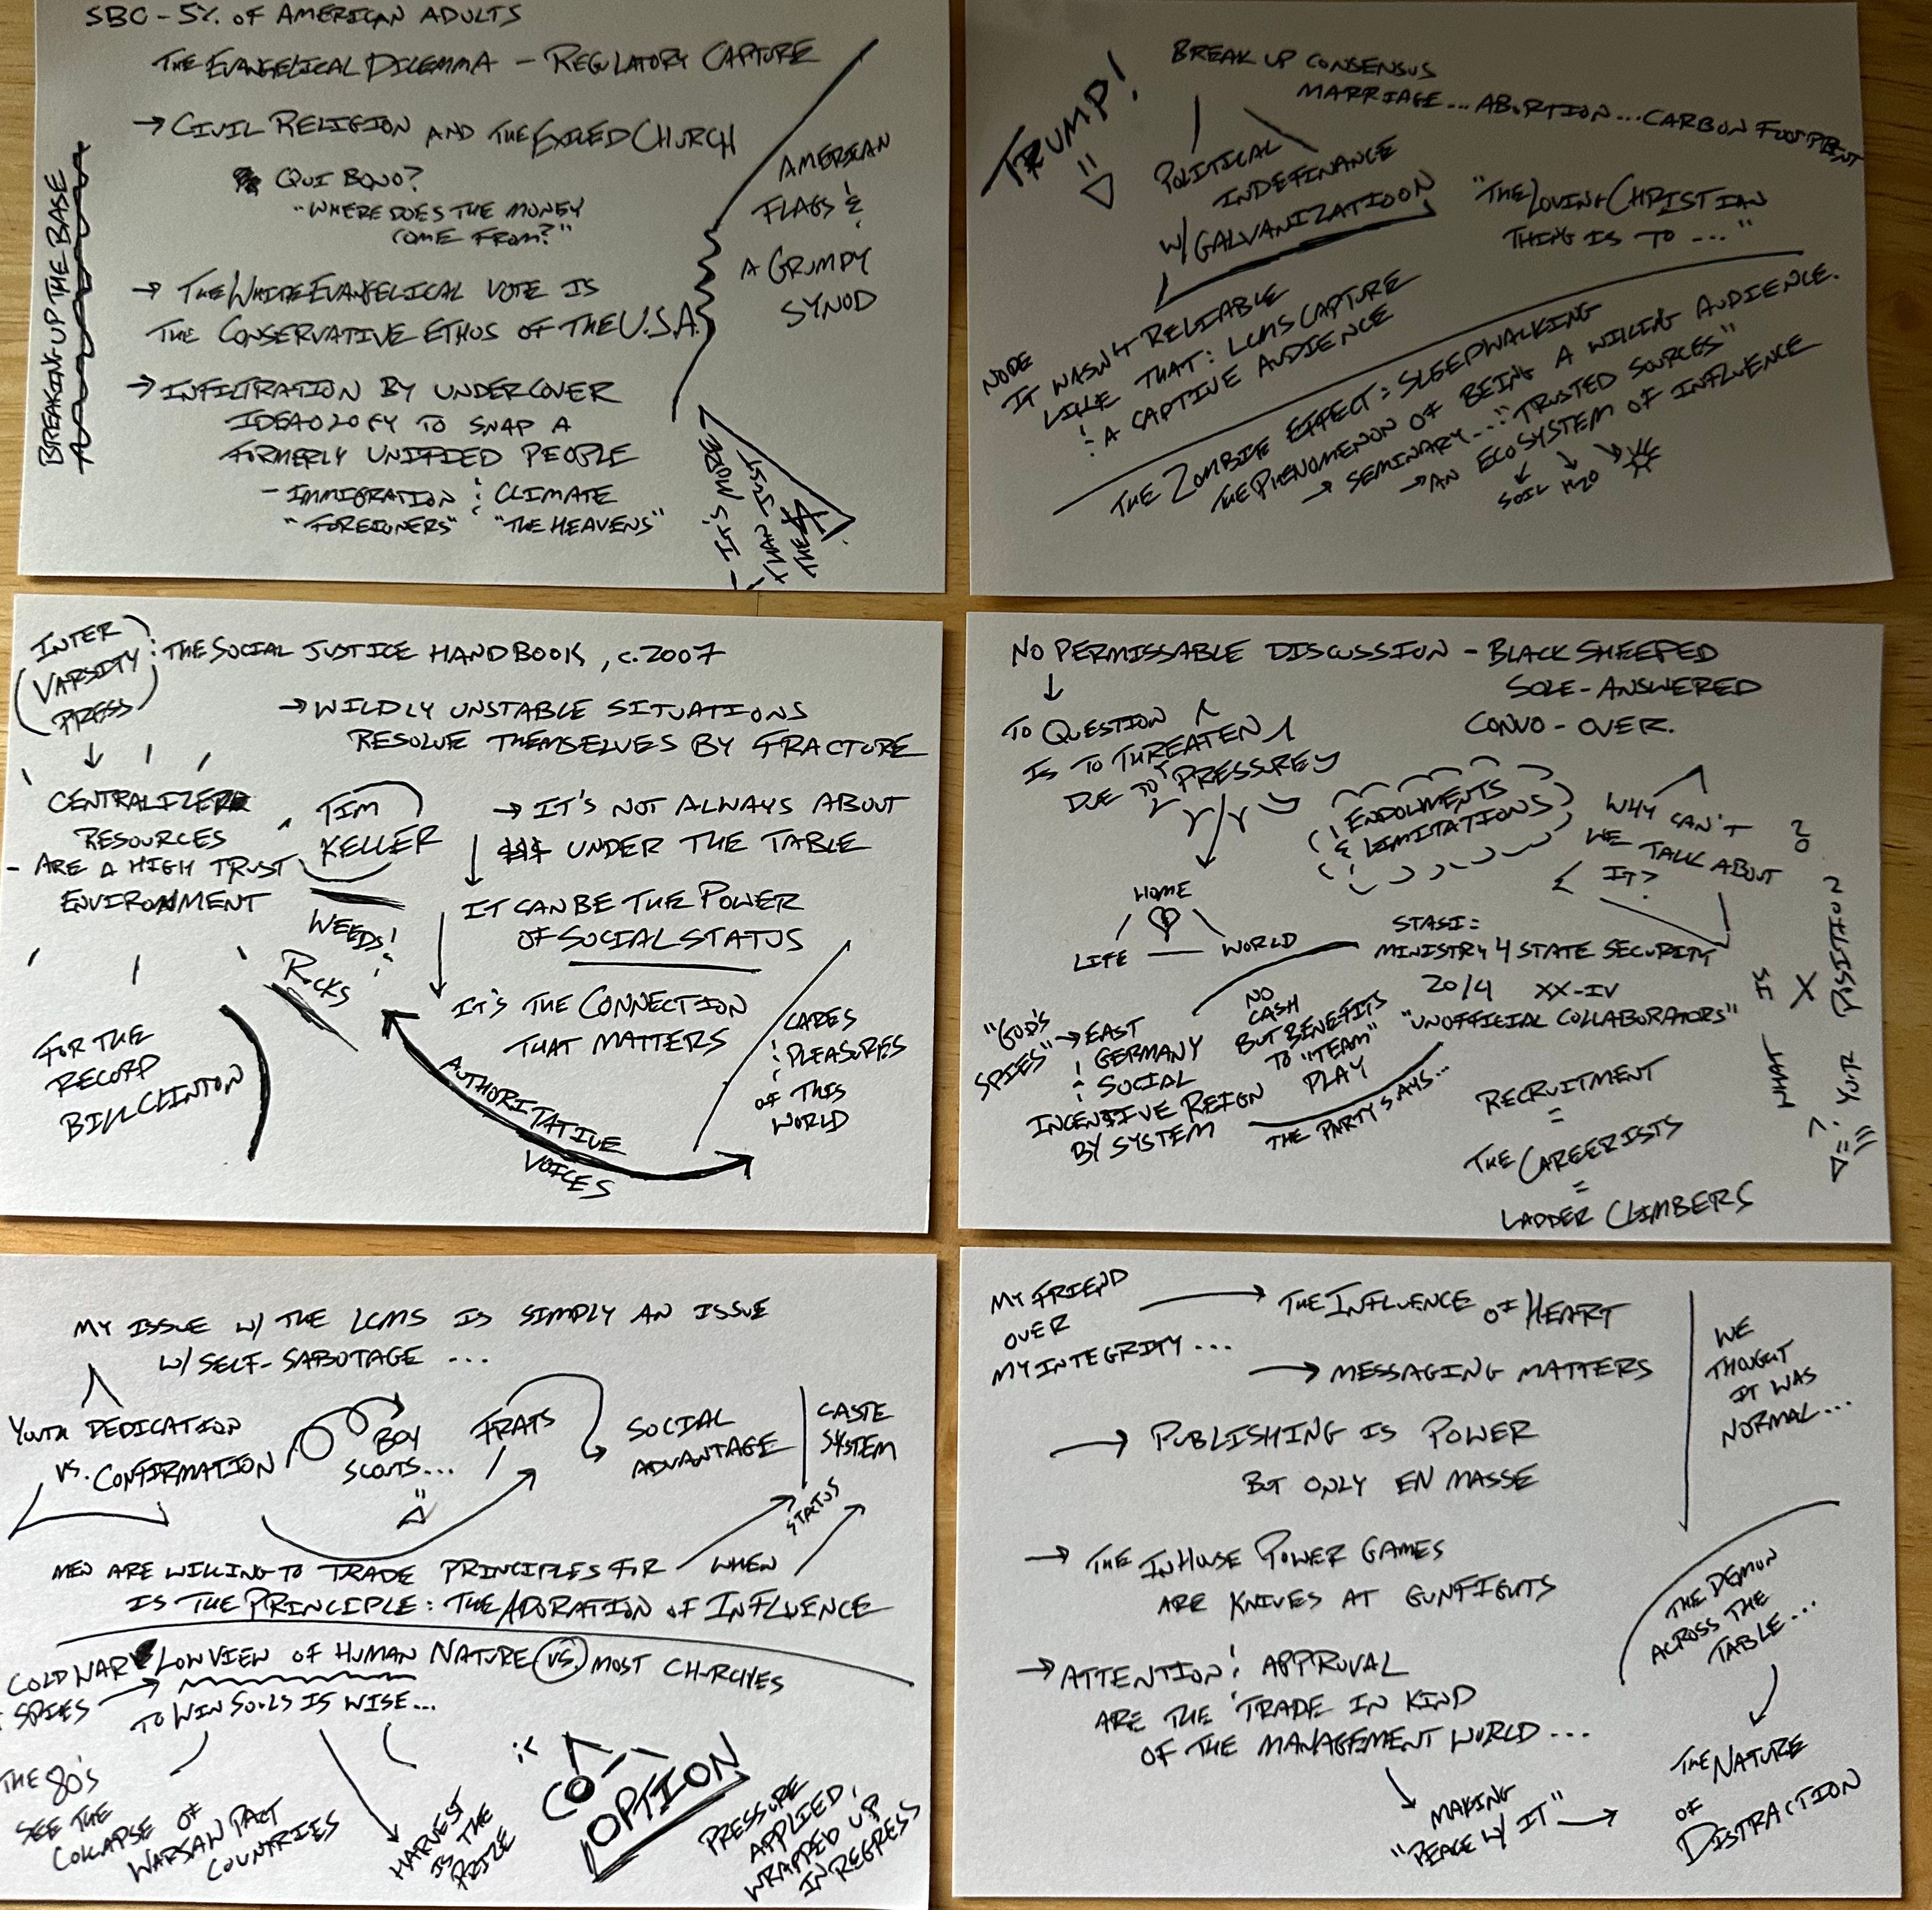 SBC - 5% OF AMERICAN ADULTS
THE EVANGELICAL DILEMMA - REGULATORY CAPTURE
→ CIVIL RELIGION AND THE EXILED CHURCH
QUI BONO?
"WHERE DOES THE MONEY
COME FROM?"
→ THE WHITE EVANGELICAL VOTE IS
THE CONSERVATIVE ETHOS OF THE U.S.A.
→ INFILTRATION BY UNDERCOVER
IDEAOLOGY TO SNAP A
FORMERLY UNIFIED PEOPLE
- IMMIGRATION & CLIMATE
"FOREIGNERS" "THE HEAVENS"
BREAKING UP THE BASE
AMERICAN
FLAGS &
A GRUMPY
SYNOD
- IT'S MORE
THAN JUST
THE $
TRUMP!
BREAK UP CONSENSUS
MARRIAGE... ABORTION... CARBON FOOTPRINT
POLITICAL
INDEFINANCE
W/ GALVANIZATIOON
"THE LOVING CHRISTIAN
THING IS TO ..."
NODE
IT WASN'T RELIABLE
LIKE THAT: LCMS CAPTURE
& A CAPTIVE AUDIENCE
THE ZOMBIE EFFECT: SLEEPWALKING
THE PHENOMENON OF BEING A WILLING AUDIENCE.
→ SEMINARY... "TRUSTED SOURCES"
→ AN ECOSYSTEM OF INFLUENCE
SOIL H2O
INTER
VARSITY
PRESS
: THE SOCIAL JUSTICE HANDBOOK, c.2007
→ WILDLY UNSTABLE SITUATIONS
RESOLVE THEMSELVES BY FRACTURE
CENTRALIZED
RESOURCES
- ARE A HIGH TRUST
ENVIRONMENT
TIM
KELLER
WEEDS!
ROCKS
→ IT'S NOT ALWAYS ABOUT
$$$ UNDER THE TABLE
IT CAN BE THE POWER
OF SOCIAL STATUS
IT'S THE CONNECTION
THAT MATTERS
AUTHORITATIVE
VOICES
CARES
& PLEASURES
OF THIS
WORLD
FOR THE
RECORD
BILL CLINTON
NO PERMISSABLE DISCUSSION - BLACK SHEEPED
SOLE-ANSWERED
CONVO-OVER.
TO QUESTION
IS TO THREATEN
DUE TO PRESSURE
ENDOLMENTS
& LIMITATIONS
WHY CAN'T
WE TALK ABOUT
IT?
HOME
LIFE — WORLD
STASI:
MINISTRY 4 STATE SECURITY
20/4 XX-IV
"UNOFFICIAL COLLABORATORS"
"GOD'S
SPIES" → EAST
GERMANY
& SOCIAL
INCENTIVE REIGN
BY SYSTEM
NO
CASH
BUT BENEFITS
TO "TEAM"
PLAY
THE PARTY SAYS...
RECRUITMENT
=
THE CAREERISTS
=
LADDER CLIMBERS
WHAT IS
YO'R POSITION?
MY ISSUE W/ THE LCMS IS SIMPLY AN ISSUE
W/ SELF-SABOTAGE ...
YOUTH DEDICATION
VS. CONFIRMATION
BOY
SCOUTS...
FRATS
SOCIAL
ADVANTAGE
CASTE
SYSTEM
STATUS
MEN ARE WILLING TO TRADE PRINCIPLES FOR WHEN
IS THE PRINCIPLE: THE ADORATION OF INFLUENCE
COLD WAR LOW VIEW OF HUMAN NATURE VS. MOST CHURCHES
SPIES → TO WIN SOULS IS WISE...
THE 80'S
SEE THE
COLLAPSE OF
WARSAW PACT
COUNTRIES
HARVEST
IS THE
PRIZE
CO-
OPTION
PRESSURE
APPLIED,
WRAPPED UP
IN REGRESS
MY FRIEND
OVER
MY INTEGRITY...
→ THE INFLUENCE OF HEART
→ MESSAGING MATTERS
→ PUBLISHING IS POWER
BUT ONLY EN MASSE
→ THE INHOUSE POWER GAMES
ARE KNIVES AT GUNFIGHTS
→ ATTENTION & APPROVAL
ARE THE TRADE IN KIND
OF THE MANAGEMENT WORLD...
MAKING
"PEACE W/ IT" →
WE
THOUGHT
IT WAS
NORMAL...
THE DEMON
ACROSS THE
TABLE...
THE NATURE
OF
DISTRACTION